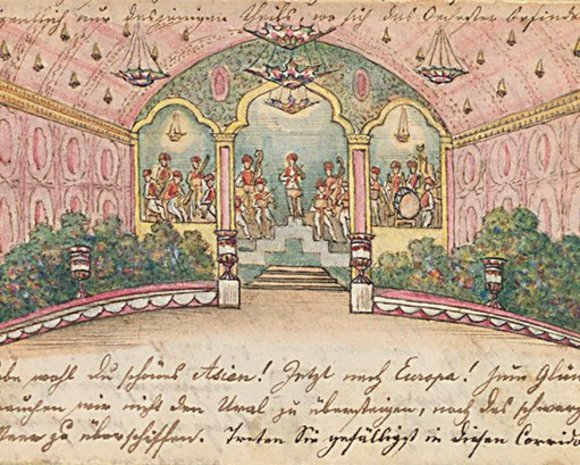 gentlich nur desjenigen Theils, wo sich das Orchester befinde
be wohl Du schönes Asien! Jetzt nach Europa! Zum Glü
rauchen wir nicht den Ural zu übersteigen, noch das schwarz
Meer zu überschiffen. Treten Sie gefälligst in diesen Corrid